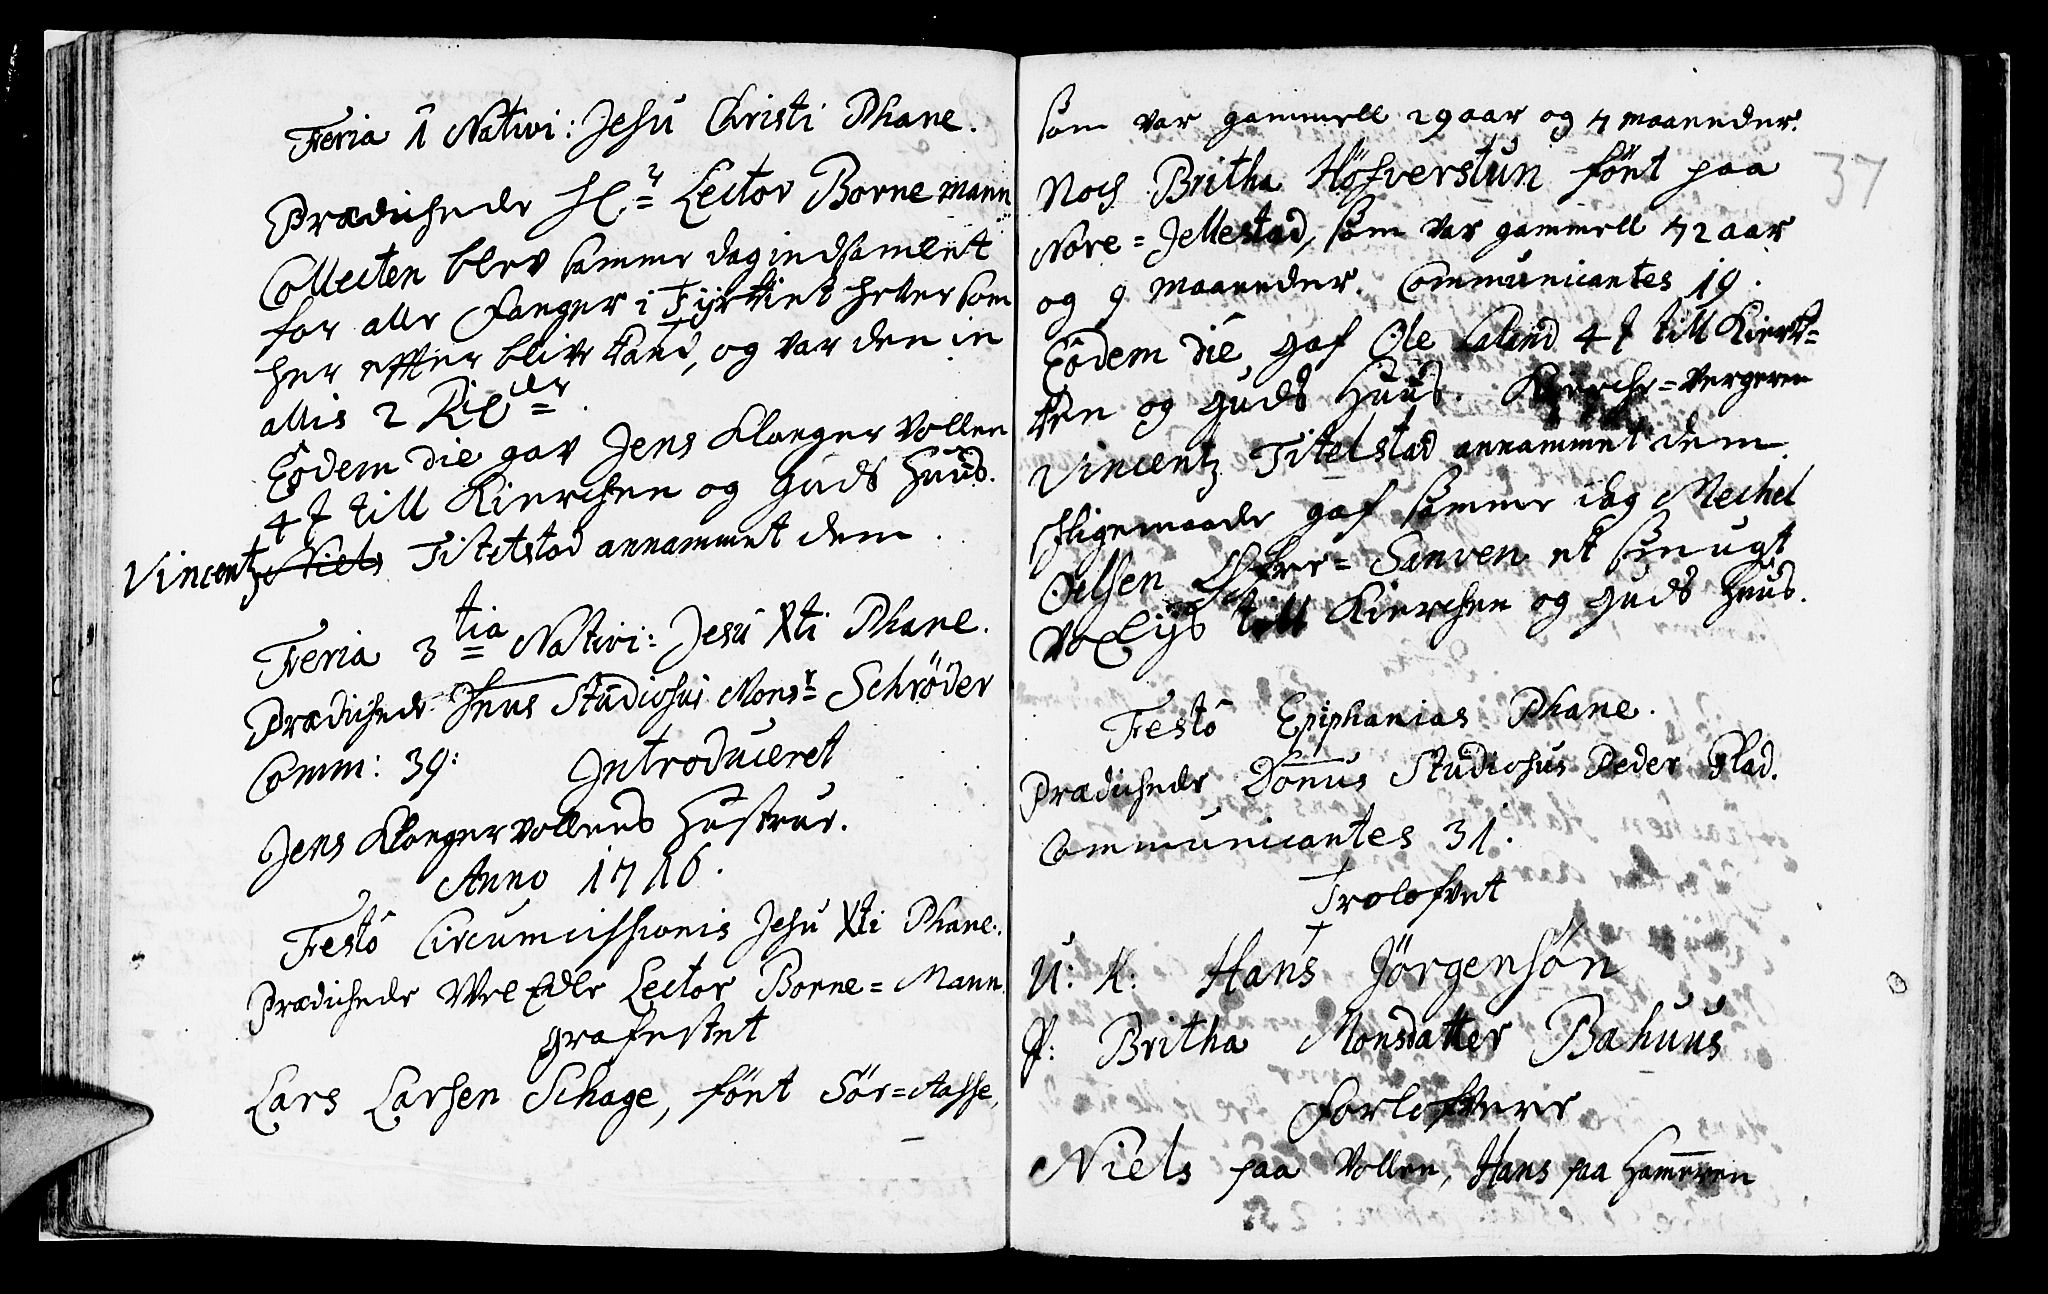 Feria 1 Nativi: Jesu Christi Phane.
Prædichede Hr= Lector Bornemann
Collecten blev samme dag indsamlent
for alle Fanger i Tyrkiet heller som
her effter blive tand, og var den in
allis 2 Rixdlr=.
Eodem die gav Jens Klonger Vollen
4 t till Kierchen og Guds Huus.
Vincentz Niels Titelstad annammet dem.
Feria 3tia= Nativi: Jesu Xti Phane.
Prædichede Dnus Studiosus Monsr= Schrøder
Comm: 39: Introduceret
Jens Klongervollens Hustrue.
Anno 1716.
Festo Circumcissionis Jesu Xti Phane.
Prædichede Vel Edle Lector Borne=Mann.
grafestet
Lars Larsen Schage, fönt Sör=Aasse,
som var gammell 29 aar og 7 maaneder.
37
Noch Britha Höfverstun fönt paa
Nore=Jellestad, som var gammell 72 aar
og 9 maaneder. Communicantes 19.
Eodem die gaf Ole Lalind 4 t till Kierk=
ken og Guds Huus. Kierche=Vergeren
Vincentz Titelstad annammet dem.
Sligemaade gaf samme idag Mechel
Olsen Öfre=Sanven et smugt
voxlys till Kierchen og Guds Huus.
Festo Epiphanias Phane.
Prædichede Domus Studiosus Peder Blad.
Communicantes 31.
Trolofvet
U: K: Hans Jörgensön
P: Britha Monsdatter Bahuus
Forlofvere
Niels paa Vollen, Hans paa Hammeren